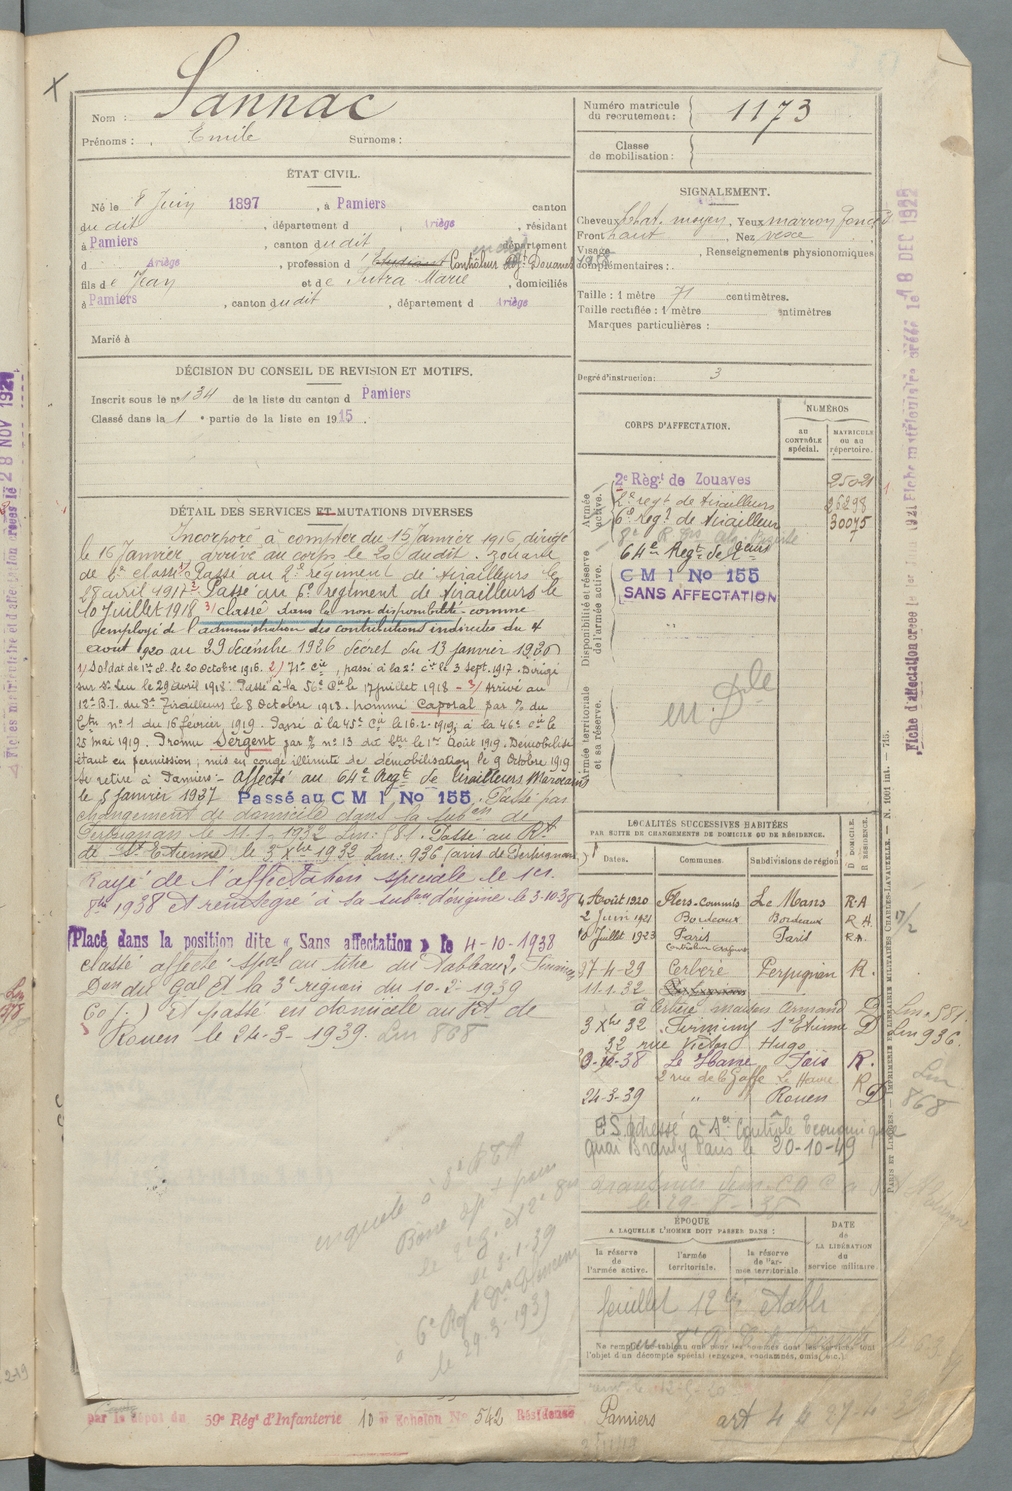 Nom : Sannac
Prénoms : Emile Surnoms :
ÉTAT CIVIL.
Né le 8 Juin 1897, à Pamiers canton
du dit, département d Ariège, résidant
à Pamiers, canton du dit département
d Ariège, profession d' Etudiant Contrôleur adjt Douanes
fils de Jean et de Sutra Marie, domiciliés
à Pamiers, canton du dit, département d Ariège
Marié à
DÉCISION DU CONSEIL DE REVISION ET MOTIFS.
Inscrit sous le n° 134 de la liste du canton d Pamiers
Classé dans la 1e partie de la liste en 1915.
DÉTAIL DES SERVICES ET MUTATIONS DIVERSES
Incorporé à compter du 15 Janvier 1916, dirigé
le 16 Janvier, arrivé au corps le 20 du dit. Zouave
de 2e classe 1/ Passé au 2e régiment de tirailleurs le
28 avril 1917 2/ Passé au 6e régiment de tirailleurs le
10 Juillet 1918 3/ classé dans la non disponibilité comme
employé de l'administration des contributions indirectes du 4
août 1920 au 29 décembre 1926 décret du 13 janvier 1920
1/ Soldat de 1re cl. le 20 octobre 1916. 2/ 71e Cie, passé à la 2e Cie le 3 sept. 1917. Dirigé
sur St Leu le 29 avril 1918. Passé à la 56e Cie le 17 juillet 1918 - 3/ Arrivé au
12e B.T. du 8e Tirailleurs le 8 Octobre 1918. nommé Caporal par % du
Cbtn n° 1 du 16 février 1919. Passé à la 45e Cie le 16.2.1919, à la 46e Cie le
25 mai 1919. Promu Sergent par % n° 13 du btn le 1er Août 1919. Démobilisé
étant en permission; mis en congé illimité de démobilisation le 9 Octobre 1919
Se retire à Pamiers - Affecté au 64e Regt de Tirailleurs Marocains
le 5 Janvier 1927 Passé au C M I No 155. Passé par
changement de domicile dans la subon de
Perpignan le 11-1-1932 Lm: 581. Passé au Rt
de St Etienne le 3 Xbre 1932 Lm: 936 (avis de Perpignan)
Rayé de l'affectation spéciale le 1er
1938 et réintégré à la subon d'origine le 3-10-38
Placé dans la position dite « Sans affectation » le 4-10-1938
Classé affecté spal au titre du Tableau 2,
Don du Gal Ct la 3e région du 10-2-1939
et passé en domicile au Rt de
Rouen le 24-3-1939. Lm 868
enquête à 8e RTA
le 3-1-39
le 29-3-1939
par le dépôt du 59e Régt d'Infanterie 10 er Echelon No 542 Résidence Pamiers
Numéro matricule du recrutement : 1173
Classe de mobilisation :
SIGNALEMENT.
Cheveux chat. moyen, Yeux marron foncés
Front haut, Nez vexe
Visage, Renseignements physionomiques
complémentaires :
Taille : 1 mètre 71 centimètres.
Taille rectifiée : 1 mètre centimètres
Marques particulières :
Degré d'instruction : 3
CORPS D'AFFECTATION.
NUMÉROS
au CONTRÔLE spécial.
MATRICULE ou au répertoire.
Armée active.
2e Régt de Zouaves 25021
2e regt de tirailleurs 26298
6e regt de tirailleurs 30075
Disponibilité et réserve de l'armée active.
64e Regt de Tirurs
C M I No 155
SANS AFFECTATION
Armée territoriale et sa réserve.
en Dle
LOCALITÉS SUCCESSIVES HABITÉES
PAR SUITE DE CHANGEMENTS DE DOMICILE OU DE RÉSIDENCE.
Dates. Communes. Subdivisions de région D DOMICILE. R RÉSIDENCE.
4 Août 1920 Flers Le Mans R.A
2 Juin 1921 Bordeaux Bordeaux R.A.
10 Juillet 1923 Paris Paris R.A.
27-4-29 Cerbère Perpignan R.
11.1.32 à Cerbère maison Armand D
3 Xbre 32 Firminy St Etienne D
32 rue Victor Hugo
3-10-38 Le Havre Foix R.
2 rue de la Gaffe Le Havre R
24-3-39 " Rouen D
E.S. adressé à Sce Contrôle Economique
Quai Branly Paris le 20-10-49
ÉPOQUE
A LAQUELLE L'HOMME DOIT PASSER DANS :
la réserve de l'armée active.
l'armée territoriale.
la réserve de l'armée territoriale.
DATE de LA LIBÉRATION du service militaire.
feuillet établi
Ne remplir ce tableau que pour les hommes dont les services font
l'objet d'un décompte spécial (engagés, condamnés, omis, etc.).
Lm. 581.
Lm 936.
Lm 868
18 DEC 1922
28 NOV 192
PARIS ET LIMOGES. — IMPRIMERIE ET LIBRAIRIE MILITAIRES CHARLES-LAVAUZELLE. — N. 1001 int. — 715.